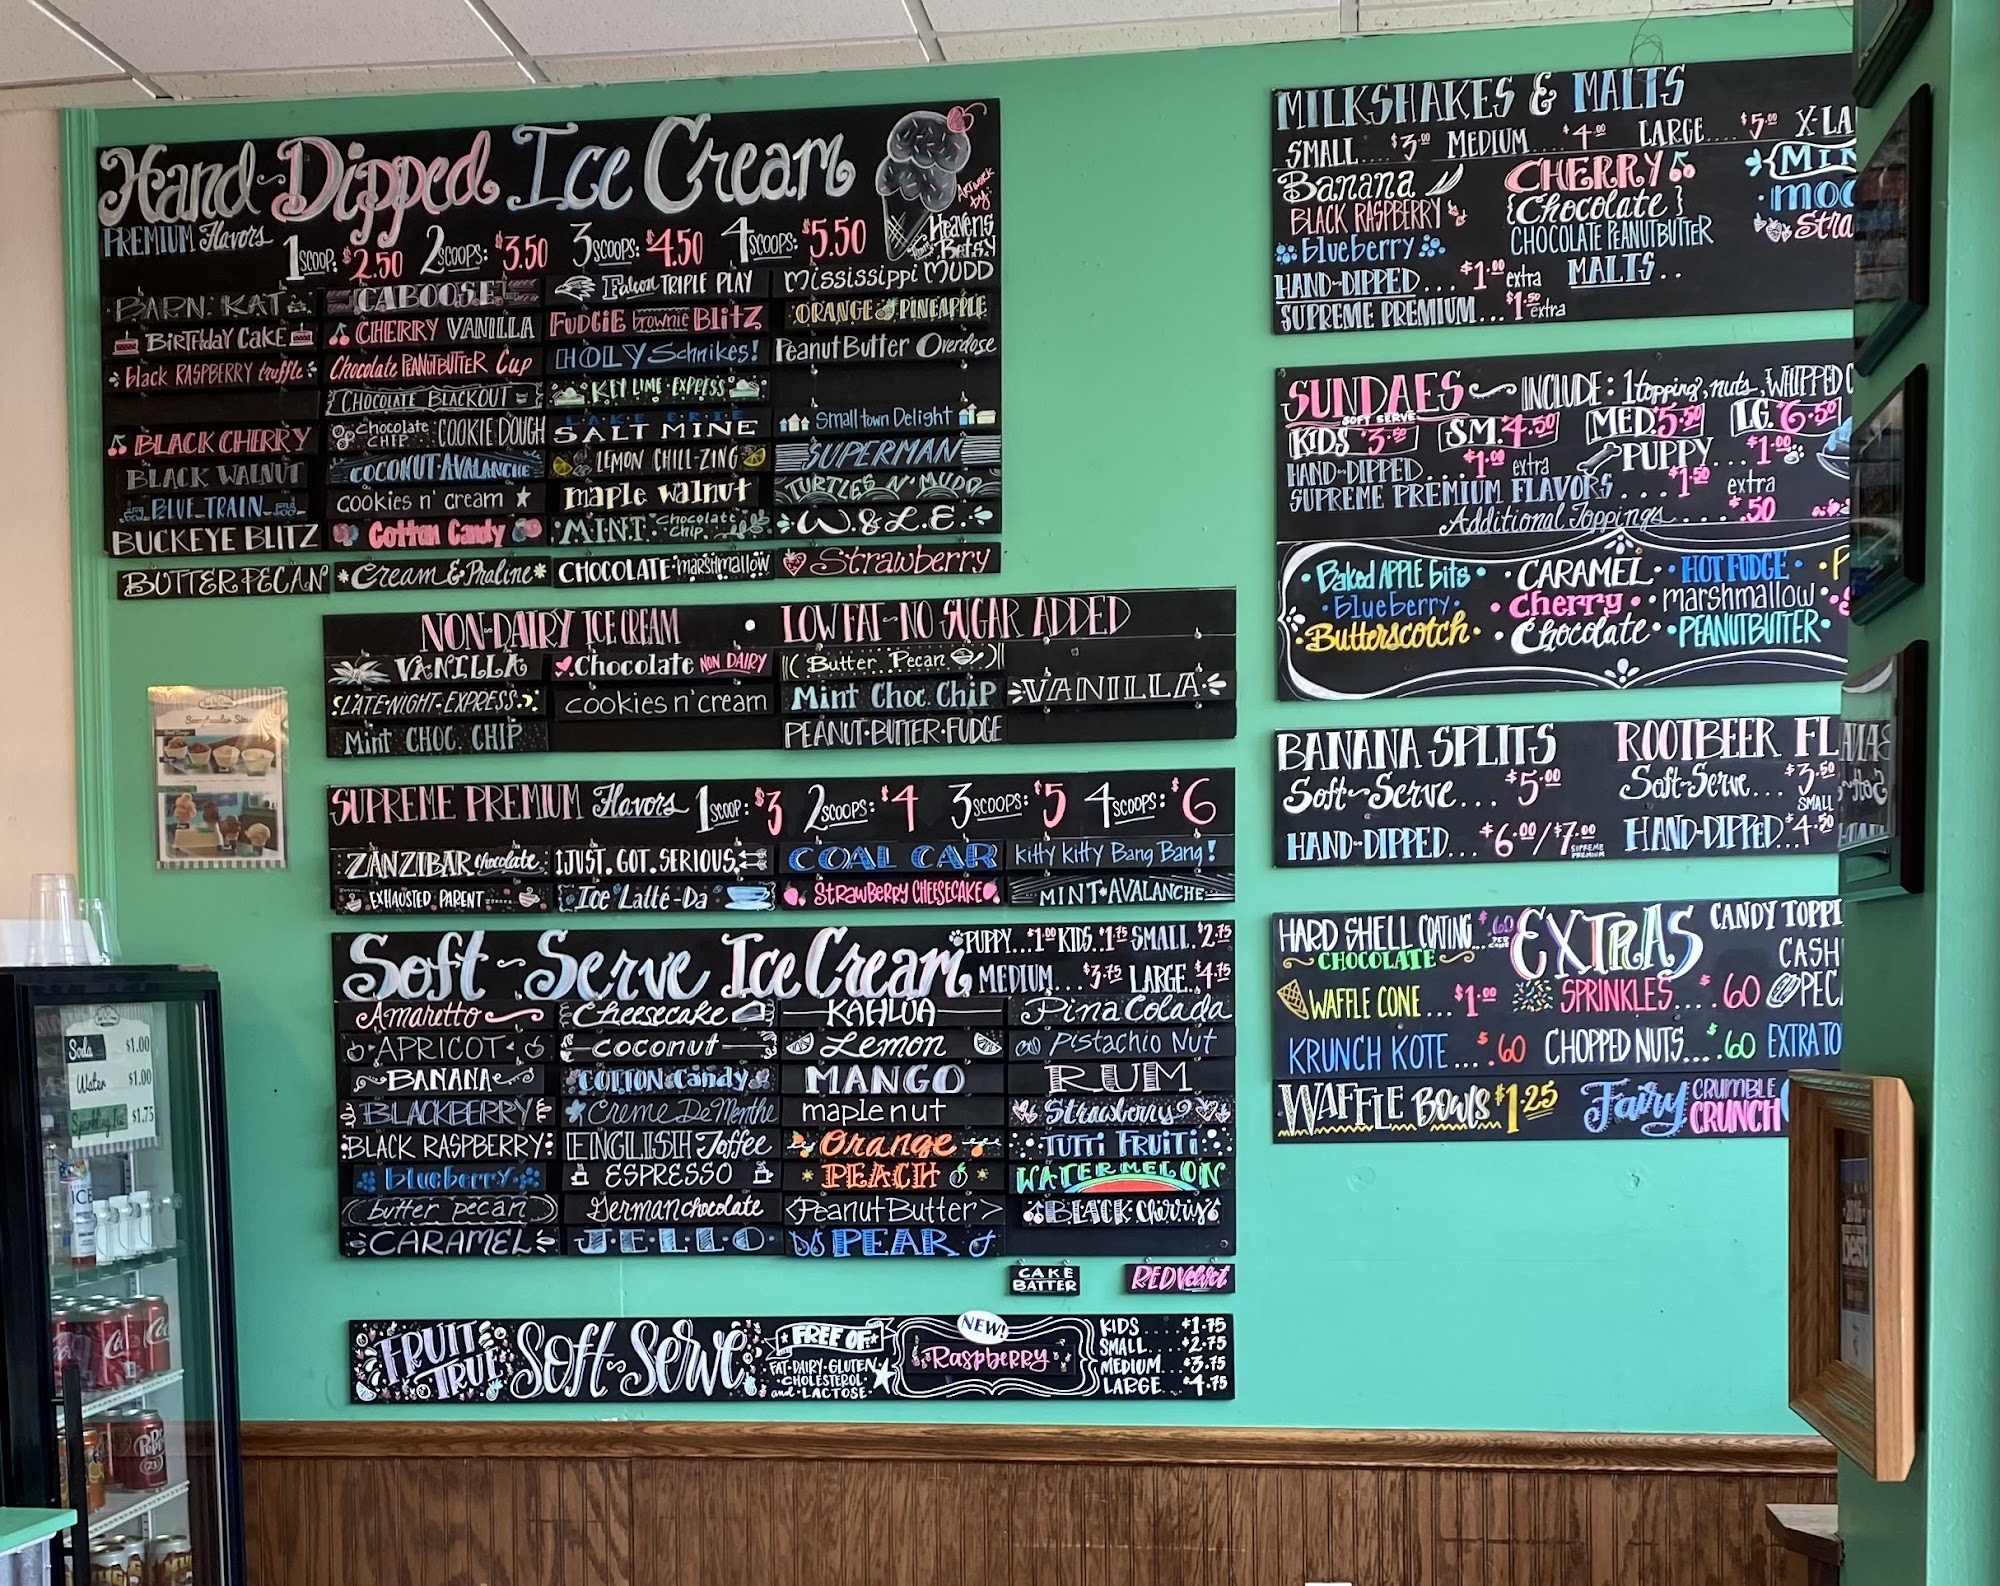 Hand-Dipped Ice Cream
Artwork by:
Heavens
Betsy
PREMIUM Flavors
1 SCOOP: $2.50 2 SCOOPS: $3.50 3 SCOOPS: $4.50 4 SCOOPS: $5.50
BARN. KAT
BiRTHday CAKE
black RASPBERRY truffle
BLACK CHERRY
BLACK WALNUT
BLUE TRAIN
BUCKEYE BLITZ
BUTTER PECAN
CABOOSE
CHERRY VANILLA
Chocolate PEANUTBUTTER Cup
CHOCOLATE BLACKOUT
Chocolate CHIP COOKIE DOUGH
COCONUT·AVALANCHE
cookies n' cream
Cotton Candy
Cream & Praline
Falcon TRIPLE PLAY
FUDGIE brownie BLiTZ
HOLY Schnikes!
KEY LIME·EXPRESS
LAKE ERIE
SALT MINE
LEMON CHILL-ZING
maple walnut
MINT Chocolate Chip
CHOCOLATE·marshmallow
Mississippi MUDD
ORANGE PINEAPPLE
Peanut Butter Overdose
Small town Delight
SUPERMAN
TURTLES N' MUDD
W.&L.E.
Strawberry
NON-DAIRY ICE CREAM • LOW FAT-NO SUGAR ADDED
VANILLA
LATE·NIGHT·EXPRESS
Mint CHOC. CHIP
Chocolate NON DAIRY
cookies n' cream
Butter Pecan
Mint Choc. Chip
PEANUT·BUTTER·FUDGE
VANILLA
SUPREME PREMIUM Flavors 1 SCOOP: $3 2 SCOOPS: $4 3 SCOOPS: $5 4 SCOOPS: $6
ZANZIBAR chocolate
JUST. GOT. SERIOUS.
COAL CAR
Kitty Kitty Bang Bang!
EXHAUSTED PARENT
Ice Latté-Da
STRAWBERRY CHEESECAKE
MINT·AVALANCHE
Soft-Serve Ice Cream
PUPPY...$1.00 KIDS..$1.75 SMALL.$2.75
MEDIUM...$3.75 LARGE..$4.75
Amaretto
APRICOT
BANANA
BLACKBERRY
BLACK RASPBERRY
blueberry
butter pecan
CARAMEL
Cheesecake
coconut
COTTON Candy
Creme De Menthe
ENGLISH Toffee
ESPRESSO
German chocolate
J·E·L·L·O
KAHLUA
Lemon
MANGO
maple nut
Orange
PEACH
<Peanut Butter>
PEAR
Pina Colada
Pistachio Nut
RUM
Strawberry
TUTTi FRUiTi
WATERMELON
BLACK Cherry
CAKE BATTER
RED Velvet
FRUIT TRUE Soft-Serve
FREE OF:
FAT·DAIRY·GLUTEN
CHOLESTEROL
and·LACTOSE
NEW!
Raspberry
KIDS.....$1.75
SMALL....$2.75
MEDIUM...$3.75
LARGE....$4.75
Soda $1.00
Water $1.00
Sparkling Ice $1.75
MILKSHAKES & MALTS
SMALL....$3.00 MEDIUM...$4.00 LARGE....$5.00 X-LA
Banana
BLACK RASPBERRY
blueberry
CHERRY
{Chocolate}
CHOCOLATE PEANUTBUTTER
MIN
MOC
Stra
HAND-DIPPED...$1.00 extra
SUPREME PREMIUM...$1.50 extra
MALTS..
SUNDAES INCLUDE: 1 topping, nuts, WHIPPED C
SOFT SERVE
KIDS $3.50 SM. 4.50 MED. 5.50 LG. 6.50
HAND-DIPPED...$1.00 extra PUPPY...$1.00
SUPREME PREMIUM FLAVORS...$1.50 extra
Additional Toppings.....50
Baked APPLE bits • CARAMEL • HOT FUDGE • P
blueberry • cherry • marshmallow
Butterscotch • Chocolate • PEANUTBUTTER
BANANA SPLITS
Soft-Serve...$5.00
HAND-DIPPED...$6.00/$7.00 SUPREME PREMIUM
ROOTBEER FL
Soft-Serve...$3.50
SMALL
HAND-DIPPED $4.50
HARD SHELL COATING...$.60 PER CONE
CHOCOLATE
EXTRAS
CANDY TOPPI
CASH
WAFFLE CONE...$1.00 SPRINKLES....$.60 PEC
KRUNCH KOTE...$.60 CHOPPED NUTS....$.60 EXTRA TO
WAFFLE BOWLS $1.25 Fairy CRUMBLE CRUNCH